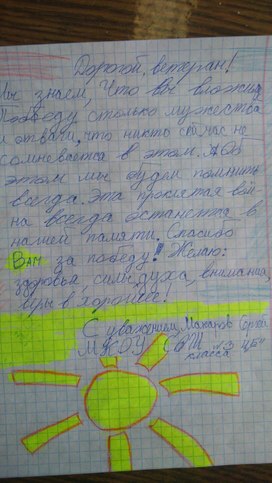 Дорогой, ветеран!
Мы знаем, Что вы вложили
Победу столько мужества
и отваги, что никто сейчас не
сомневается в этом. А об
этом мы будем помнить
всегда. Эта проклятая вой-
на всегда останется в
нашей памяти. Спасибо
Вам за победу! Желаю:
здоровья, силы духа, внимания,
веры в хорошее!
С уважением, Маканов Сергей
МКОУ СОШ "3 "Б"
класса